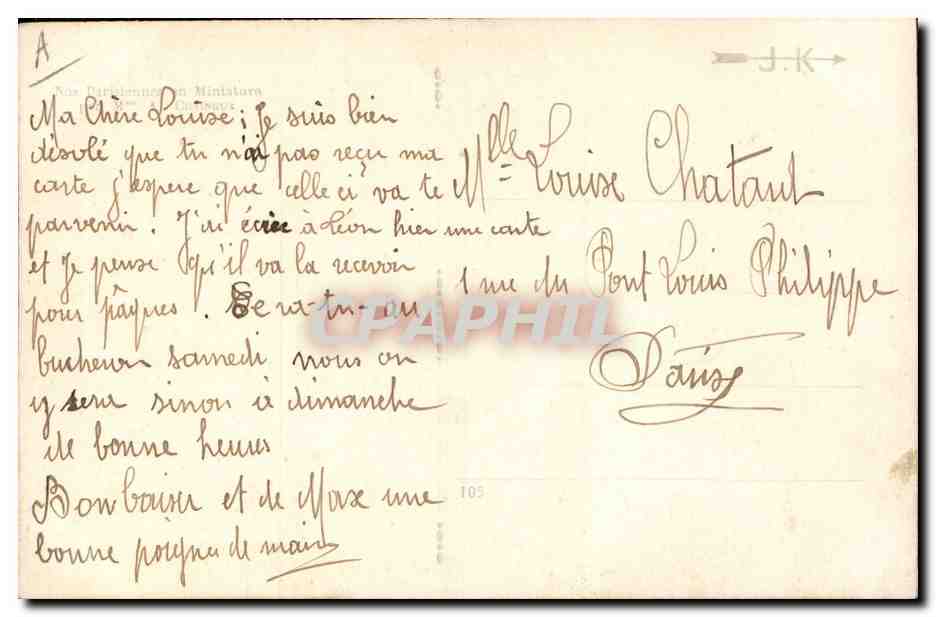 A
J.K
Nos Parisiennes en Miniature
Ma Chère Louise ; Je suis bien
désolé que tu n'ai pas reçu ma
carte j'espere que celle ci va te
parvenir. J'ai à Léon hier une carte
et Je pense qu'il va la recevoir
pour pâques. Sera-tu-au
bucheron samedi nous on
y sera sinon à dimanche
de bonne heures
Bon baiser et de Max une
bonne poignee de main
Mlle Louise Chataut
1 rue du Pont Louis Philippe
Paris
105
CPAPHIL